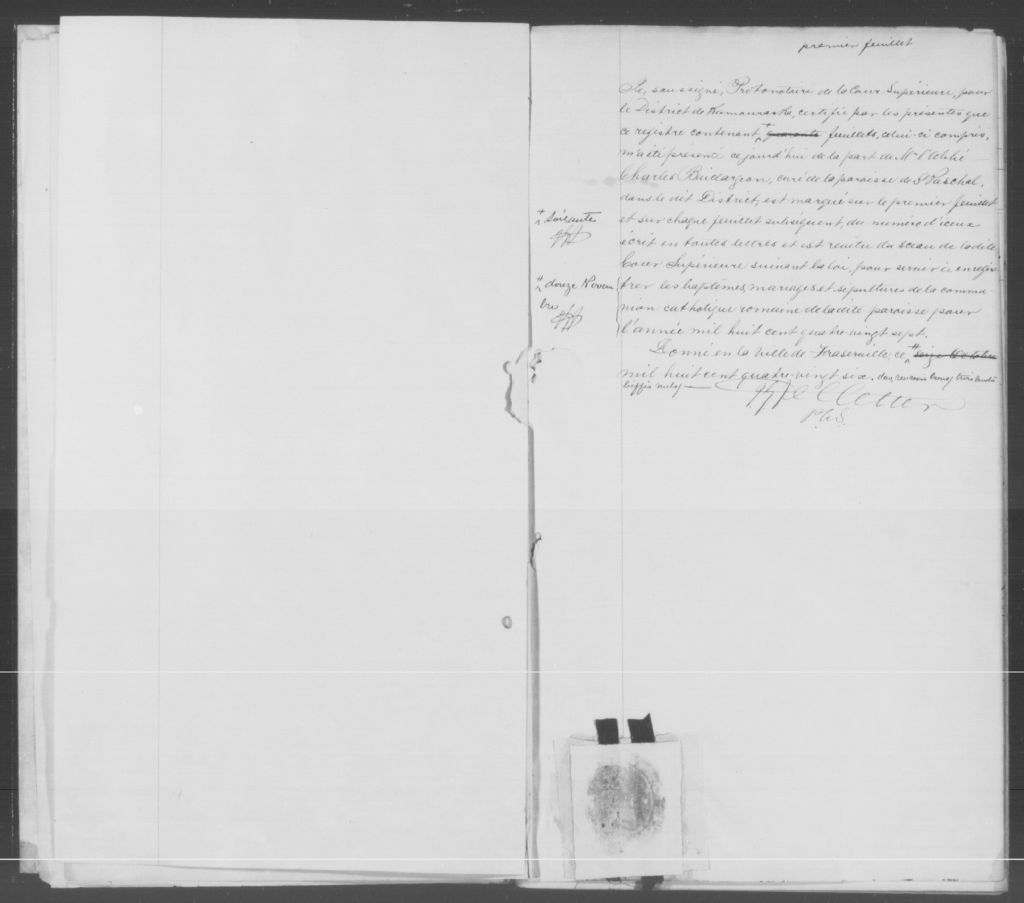 premier feuillet
Je, soussigné, Protonotaire de la Cour Supérieure, pour
le District de Kamouraska, certifie par les présentes que
ce régistre contenant + quarante feuillets, celui-ci compris,
m'a été présenté ce jourd'hui de la part de Mr l'Abbé
Charles Baillargeon, curé de la paroisse de St Paschal,
dans le dit District, est marqué sur le premier feuillet
+ Soixante
et sur chaque feuillet subséquent, du numéro d'iceux
écrit en toutes lettres et est revêtu du sceau de la dite
Cour Supérieure suivant la loi, pour servir à enregis-
++ douze Novem
bre
trer les baptêmes, mariages et sépultures de la commu-
nion catholique romaine de la dite paroisse pour
l'année mil huit cent quatre vingt sept.
Donné en la Ville de Fraserville, ce ++ seize Octobre
mil huit cent quatre-vingt six. deux renvois bons, trois mots
biffés nuls
P.C.S.